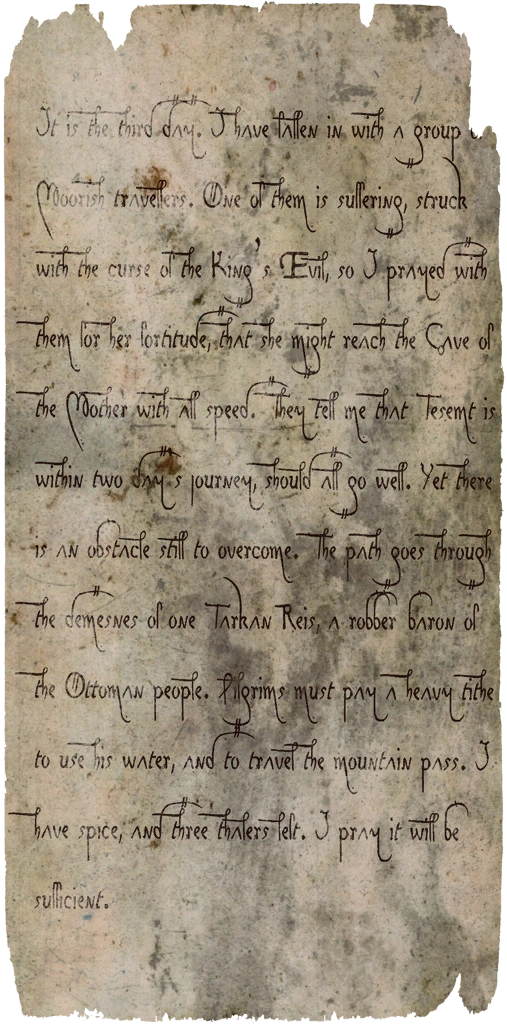 It is the third day. I have fallen in with a group
Moorish travellers. One of them is suffering, struck
with the curse of the King's Evil, so I prayed with
them for her fortitude, that she might reach the Cave of
the Mother with all speed. They tell me that Tesemt is
within two day's journey, should all go well. Yet there
is an obstacle still to overcome. The path goes through
the demesnes of one Tarkan Reis, a robber baron of
the Ottoman people. Pilgrims must pay a heavy tithe
to use his water, and to travel the mountain pass. I
have spice, and three thalers left. I pray it will be
sufficient.